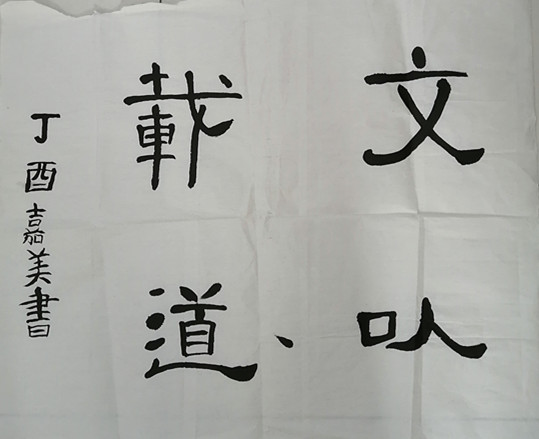 文以
載道
丁酉嘉美書